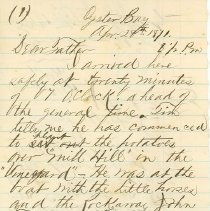 (1)
Oyster Bay
Apr. 29th 1891.
Dear Father 2/2 P.M
I arrived here
safely at twenty minutes
of "7 O'Clock" ahead of
the general time. Jim
tells me he has commenced
to set out the potatoes
our "Mill Hill" in the
Vineyard" - He was at the
boat with the little horses
and the Rockaway John